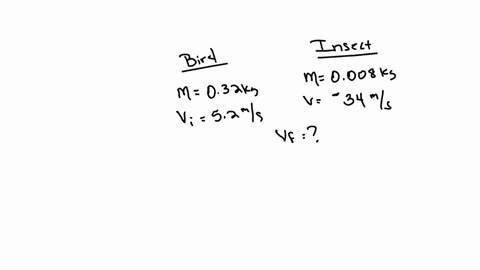 Bird
m = 0.32kg
Vi = 5.2 m/s
Insect
m = 0.008kg
V = -34 m/s
Vf = ?